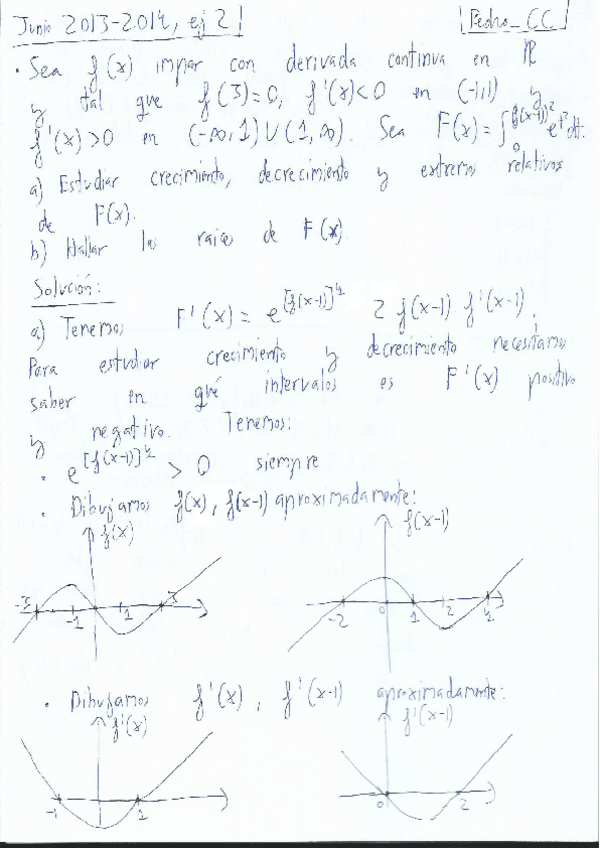 Junio 2013-2014, ej 2!
Pedro_CC
· Sea f(x) impar con derivada continua en ℝ
y tal que f(3)=0, f'(x)<0 en (-1,1) y
f'(x)>0 en (-∞,1)∪(1,∞). Sea F(x)=∫₀^{f(x-1)^2} e^{t^2}dt.
a) Estudiar crecimiento, decrecimiento y extremos relativos
de F(x).
b) Hallar las raíces de F(x).
Solución:
a) Tenemos F'(x) = e^{[f(x-1)]^4} 2 f(x-1) f'(x-1).
Para estudiar crecimiento y decrecimiento necesitamos
saber en qué intervalos es F'(x) positivo
y negativo. Tenemos:
· e^{[f(x-1)]^4} > 0 siempre
· Dibujamos f(x), f(x-1) aproximadamente:
f(x)
f(x-1)
-3 -1 1 3
-2 0 1 2 4
· Dibujamos f'(x), f'(x-1) aproximadamente:
f'(x)
f'(x-1)
-1 1
0 2